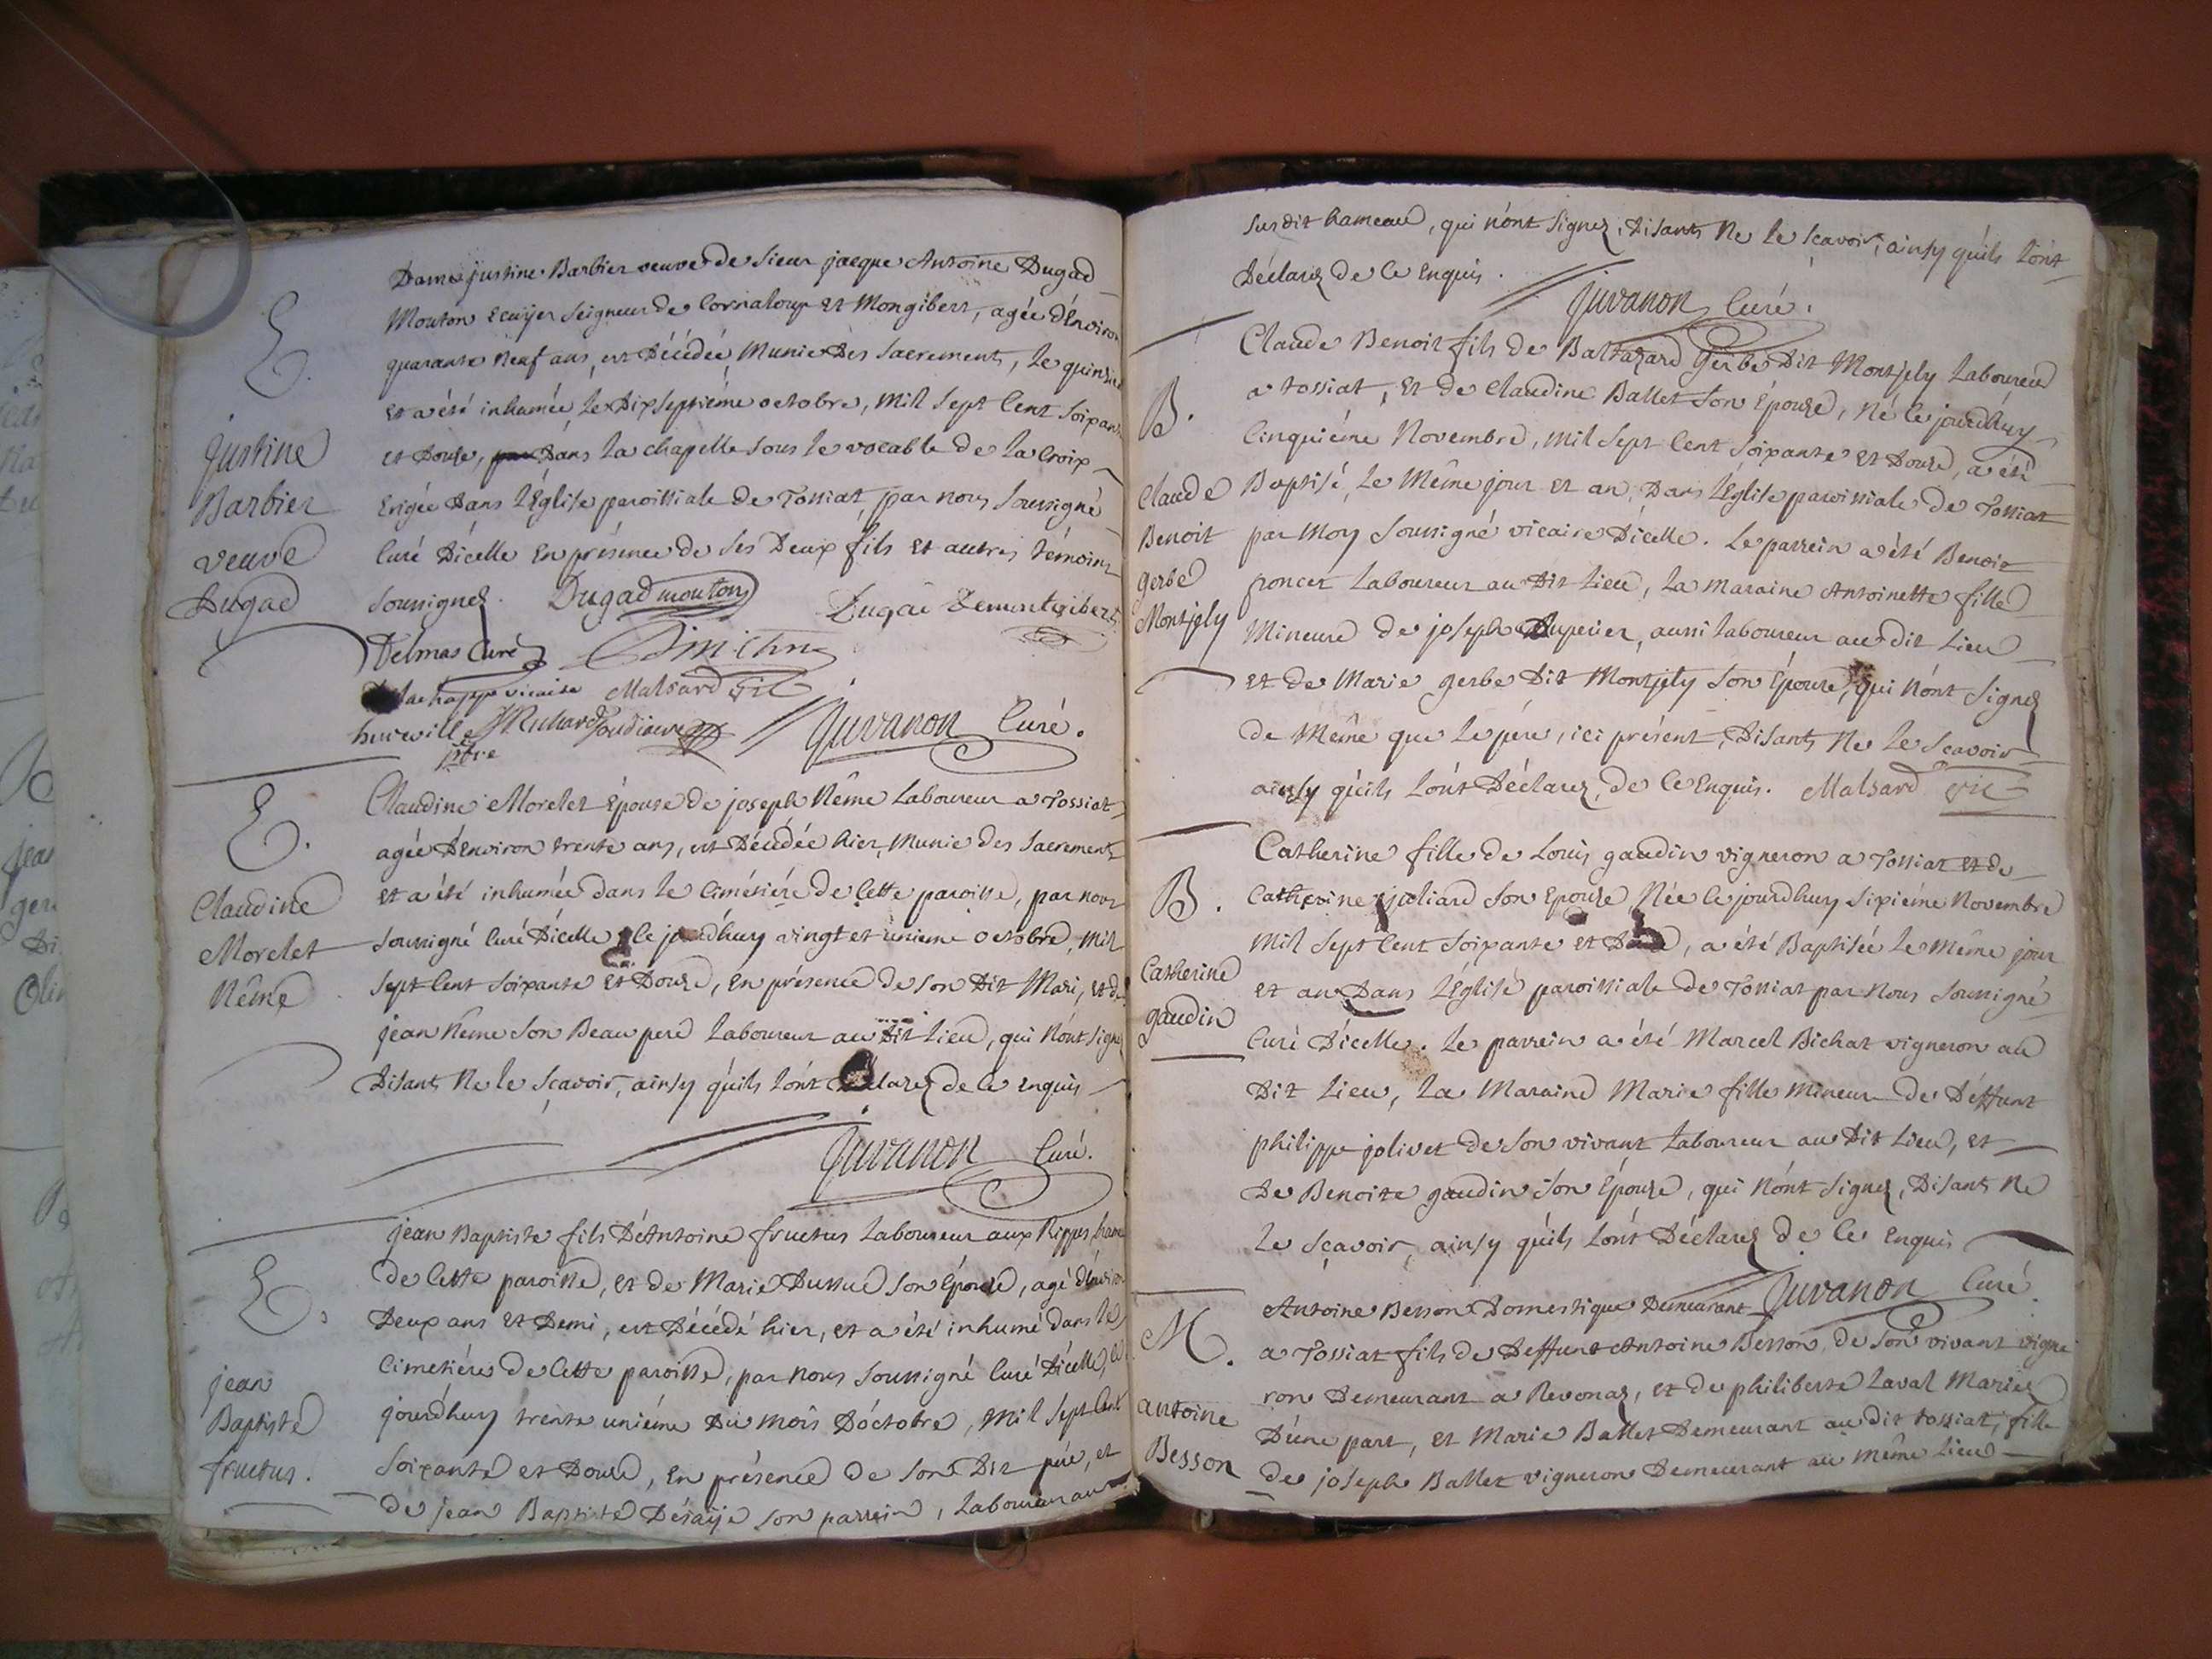 E.
Justine
Barbier
veuve
Dugad
Dame justine Barbier veuve de Sieur jacque Antoine Dugad
Mouton Ecuijer Seigneur de Cornaloup et Mongibert, agée d'Environ
quarante Neuf ans, est Décédée, Munie Des Sacrements, Le quinze
et a été inhumée Le Dixseptiéme octobre, Mil Sept Cent Soixante
et Douze, Dans La chapelle Sous Le vocable de La Croix
Erigée Dans L'Eglise paroissiale de Tossiat, par nous Soussigné
Curé D'icelle En présence de Ses Deux fils et autres témoins
Soussignez. Dugad mouton Dugad Demontgibert
Delmas Curé
vicaire Malsard vic
Richard
ptre Juvanon Curé.
E.
Claudine
Morelet
Nême
Claudine Morelet Épouse de joseph Nême Laboureur a Tossiat
agée D'Environ trente ans, est Décédée hier, Munie des Sacrements
et a été inhumée dans le Cimétiére de Cette paroisse, par nous
Soussigné Curé D'icelle Ce jourdhuy vingt et unieme octobre, Mil
Sept Cent Soixante et Douze, en présence de Son Dit Mari, et de
jean Nême Son Beau pere Laboureur au Dit Lieu, qui N'ont Signé
Disants Ne le Sçavoir, ainsy qu'ils L'ont Déclarez de Ce Enquis
Juvanon Curé.
E.
jean
Baptiste
fructus.
jean Baptiste fils D'Antoine fructus Laboureur aux Rippes hame
de Cette paroisse, et de Marie Dussue Son Épouse, agé d'Environ
Deux ans et Demi, est Décédé hier, et a été inhumé dans le
Cimetiére de Cette paroisse, par nous Soussigné Curé D'icelle, Ce
jourdhuy trente uniéme Du mois D'octobre, Mil Sept Cent
Soixante et Douze, En présence de Son Dit pére, et
de jean Baptiste Désaije Son parrein, Laboureur au
Susdit hameau, qui n'ont Signez, Disants Ne Le Sçavoir, ainsy qu'ils L'ont
Déclarez de Ce Enquis.
Juvanon Curé.
B.
Claude
Benoit
gerbe
Montjely
Claude Benoit fils de Baltazard Gerbe Dit Montjely Laboureur
a tossiat, Et de Claudine Ballet Son Épouse, Né Ce jourdhuy
Cinquiéme Novembre, Mil Sept Cent Soixante et Douze, a été
Baptisé, Le Même jour et an, Dans L'Eglise paroissiale de Tossiat
par Moy Soussigné vicaire D'icelle. Le parrein a été Benoit
poncet Laboureur au Dit Lieu, La maraine Antoinette fille
Mineure de joseph Dupuier, aussi Laboureur au dit Lieu
et de Marie gerbe Dit Montjely Son Épouse, qui N'ont Signez
de Même que Le pére, ici présent, Disants Ne Le Scavoir
ainsy qu'ils L'ont Déclarez, de Ce Enquis. Malsard vic
B.
Catherine
gaudin
Catherine fille de Louis gaudin vigneron a Tossiat et de
Catherine juliard Son Epouse Née Ce jourdhuy Sixiéme Novembre
Mil Sept Cent Soixante et Douze, a été Baptisée Le Même jour
et an Dans L'Eglise paroissiale de Tossiat par Nous Soussigné
Curé D'icelle. Le parrein a été Marcel Bichat vigneron au
Dit Lieu, La Maraine Marie fille Mineur De Déffunt
philippe jolivet de Son vivant Laboureur au Dit Lieu, et
De Benoite gaudin Son Épouse, qui N'ont Signez, Disants Ne
Le Sçavoir, ainsy qu'ils L'ont Déclarez de Ce Enquis
Juvanon Curé.
M.
antoine
Besson
Antoine Besson Domestique Demeurant
a Tossiat fils de Deffunt Antoine Besson, de Son vivant vigne
ron Demeurant a Revonaz, et de philiberte Laval Mariez
D'une part, et Marie Ballet Demeurant au dit tossiat, fille
de joseph Ballet vigneron Demeurant au même Lieu